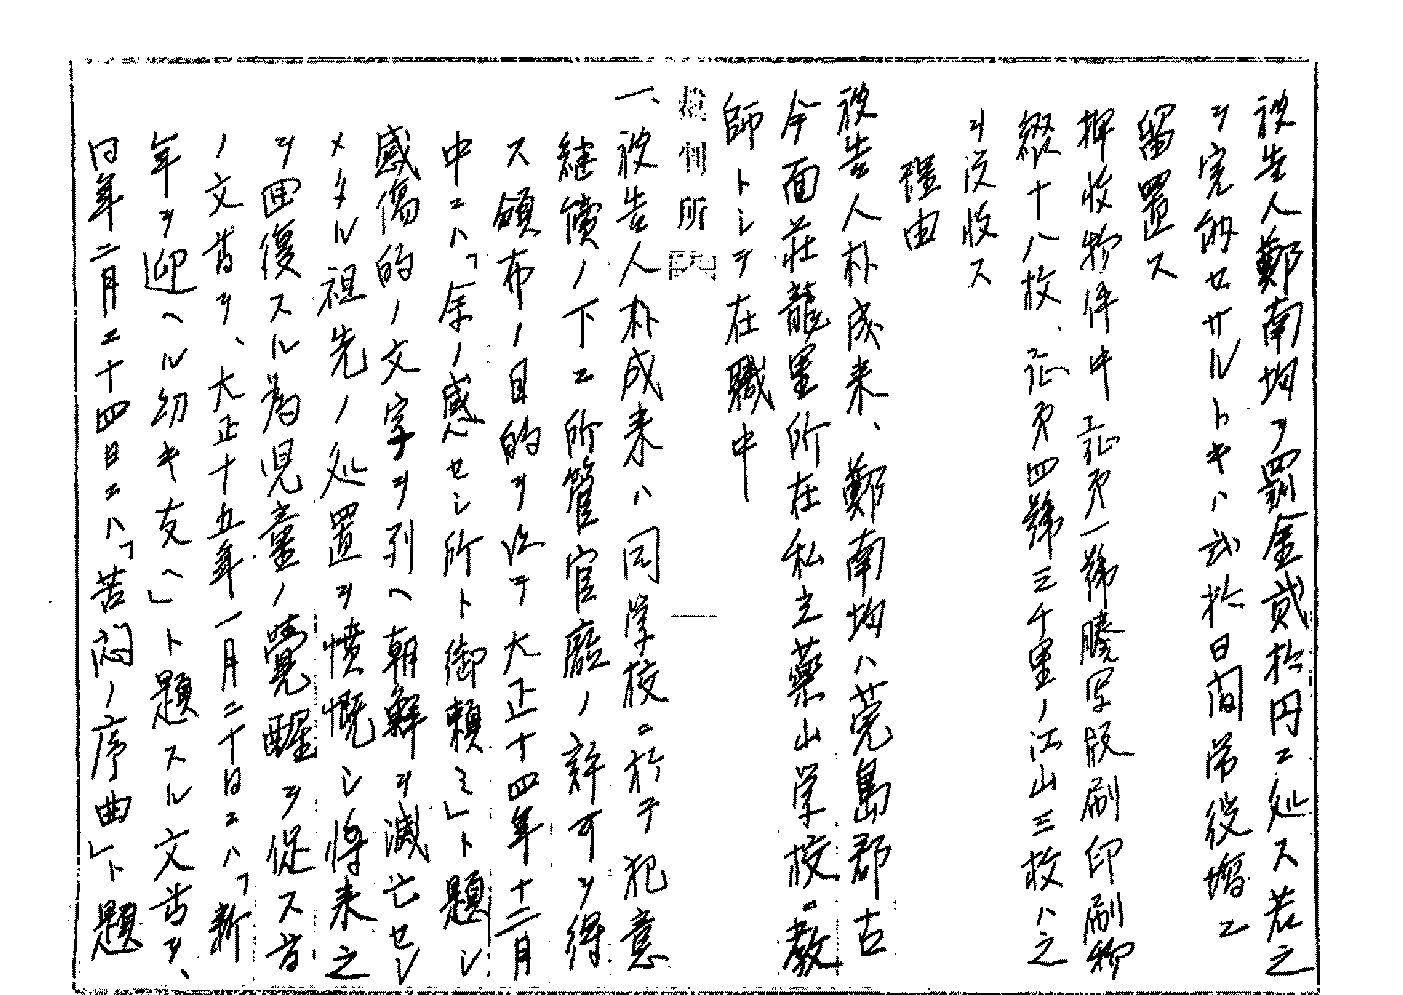 被告人鄭南均ヲ罰金貳拾円ニ処ス若之
ヲ完納セサルトキハ弐拾日間労役場ニ
留置ス
押收物件中証第一號謄写版刷印刷物
綴十八枚、証第四號三千里ノ江山三枚ハ之
ヲ没收ス
理由
被告人朴成来、鄭南均ハ莞島郡古
今面荘龍里所在私立薬山学校ニ教
師トシテ在職中
裁判所
一、被告人朴成来ハ同学校ニ於テ犯意
継續ノ下ニ所管官廳ノ許可ヲ得
ス頒布ノ目的ヲ以テ大正十四年十二月
中ニハ「余ノ感セシ所ト御頼ミ」ト題シ
感傷的ノ文字ヲ列ヘ朝鮮ヲ滅亡セシ
メタル祖先ノ処置ヲ憤慨シ将来之
ヲ回復スル為児童ノ覺醒ヲ促ス旨
ノ文書ヲ、大正十五年一月二十日ニハ「新
年ヲ迎ヘル幼キ友ヘ」ト題スル文書ヲ、
同年二月二十四日ニハ「苦悶ノ序曲」ト題